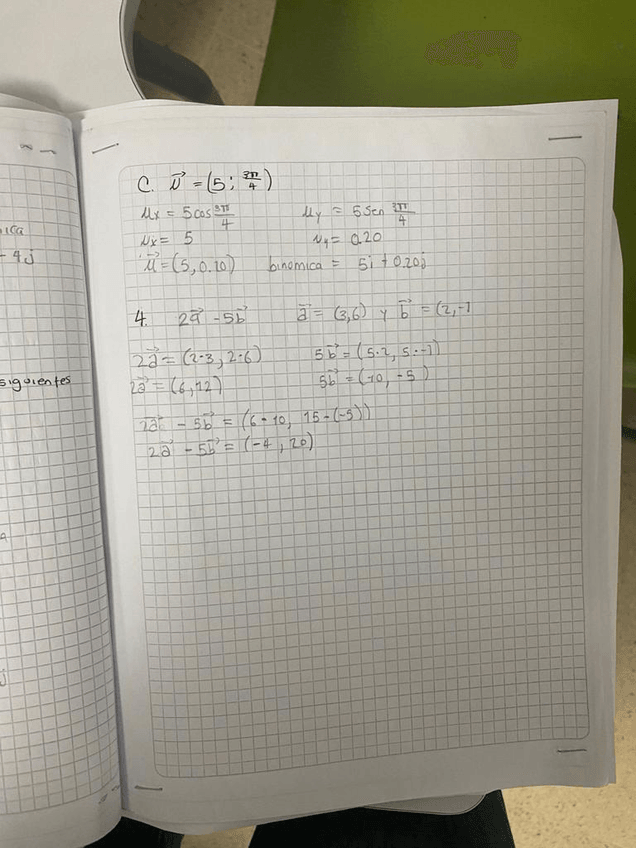 ica
- 4j
siguientes
C. u⃗ = (5; 3π/4)
Ux = 5cos 3π/4    Uy = 5 sen 3π/4
Ux = 5    Uy = 0.20
u⃗ = (5, 0.20)    binomica = 5i + 0.20j
4. 2a⃗ - 5b⃗    a⃗ = (3,6) y b⃗ = (2,-1
2a⃗ = (2·3, 2·6)    5b⃗ = (5·2, 5·-1)
2a⃗ = (6,12)    5b⃗ = (10, -5)
2a⃗ - 5b⃗ = (6-10, 15-(-5))
2a⃗ - 5b⃗ = (-4, 20)